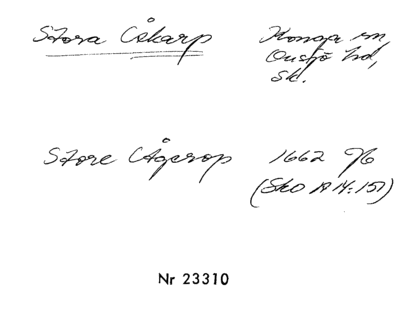 Stora Åkarp Konga sn,
Onsjö hd,
Sk.
Store Ågerop 1662 %
(Sko A 14:151)
Nr 23310